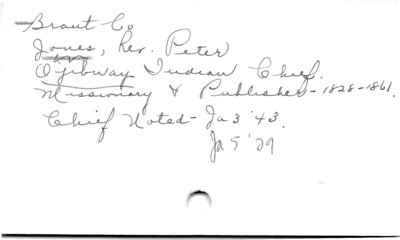 Brant Co
Jones, Rev. Peter
Ojibway Indian Chief.
Missionary & Publisher - 1828-1861.
Chief Noted - Ja 3 '43.
Ja 5 '29